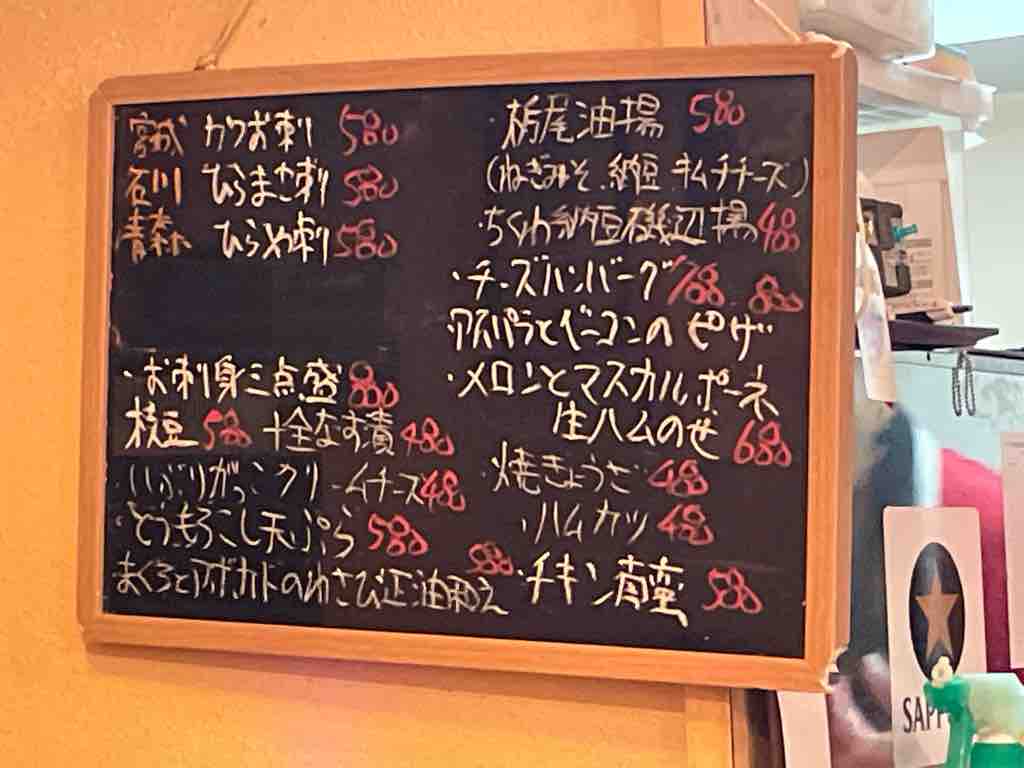 宮城 カツお刺 580
石川 ひらまさ刺 580
青森 ひらめ刺 580
・お刺身三点盛 880
枝豆 580 十全なす漬 480
いぶりがっこクリームチーズ 480
・とうもろこし天ぷら 580
まぐろとアボカドのわさび正油和え 580
栃尾油揚 580
(ねぎみそ、納豆、キムチチーズ)
・ちくわ納豆磯辺揚 480
・チーズハンバーグ 788 880
アスパラとベーコンのピザ
・メロンとマスカルポーネ
生ハムのせ 680
・焼きょうざ 480
・ハムカツ 480
・チキン南蛮 580
SAPP